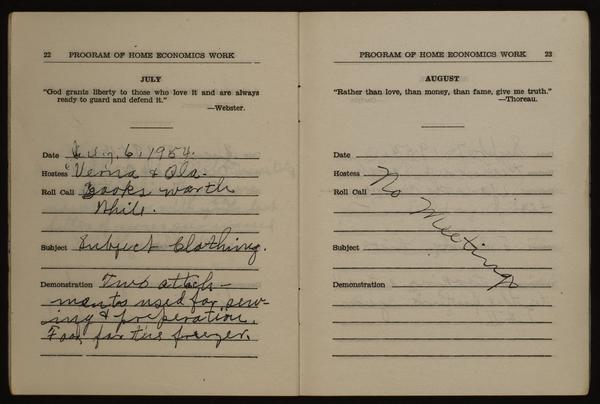 22 PROGRAM OF HOME ECONOMICS WORK
JULY
"God grants liberty to those who love it and are always
ready to guard and defend it."
—Webster.
Date July, 6, 1954.
Hostess Verna & Ola.
Roll Call Books worth
While.
Subject Subject Clothing.
Demonstration Two attach-
ments used for sew-
ing & preperation.
Food for the freezer.
PROGRAM OF HOME ECONOMICS WORK 23
AUGUST
"Rather than love, than money, than fame, give me truth."
—Thoreau.
Date
Hostess
Roll Call
No Meeting
Subject
Demonstration